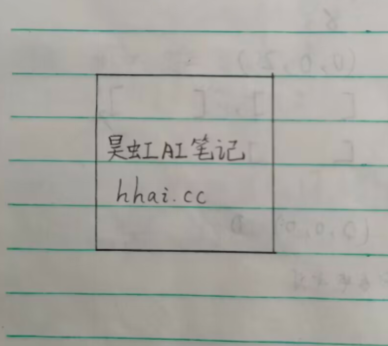 昊虹AI笔记
hhai.cc